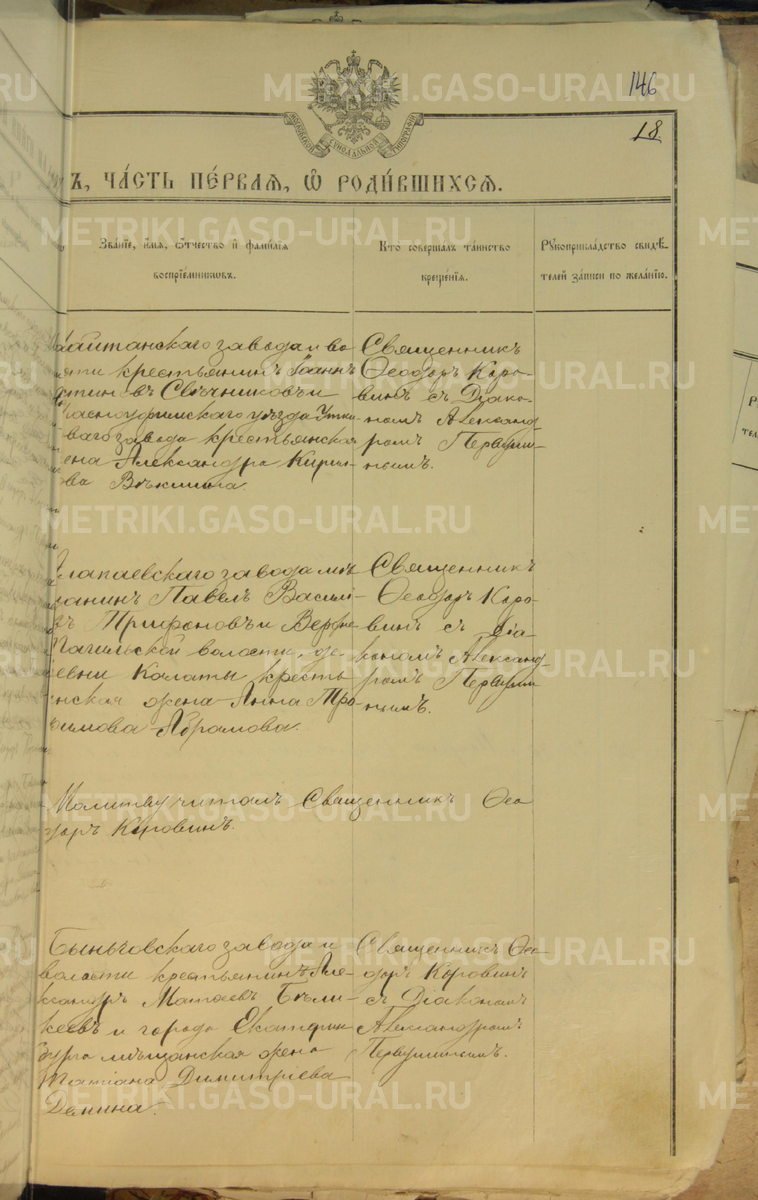 146
18
МОСКОВСКОЙ СѴНОДАЛЬНОЙ ТИПОГРАФІИ
Ъ, ЧА́СТЬ ПЕ́РВАЯ, Ѡ҆ РОДИ́ВШИХСЯ.
Зва́нїе, и҆́мя, ѻ҆́тчество и҆ фами́лїя
воспрїе́мникѡвъ.
Кто̀ соверша́лъ та́инство
креще́нїя.
Рꙋкоприкла́дство свидѣ́-
телей за́писи по жела́нїю.
Шайтанскаго завода и во
сти крестьянинъ Іоаннъ
стиновъ Свѣчниковъ и
Красноуфимскаго уѣзда Утки
ваго завода крестьянская
ена Александра Кирил
ова
Священникъ
Ѳеодоръ Коро-
винъ съ Діако-
номъ Александ-
ромъ Первуши-
нымъ.
лапаевскаго завода мѣ
щанинъ Павелъ Васил-
въ Трифоновъ и Верхне
Тагильской волости, де-
ревни Колаты кресть
нская жена Анна Тро
имова Абрамова.
Священникъ
Ѳеодоръ Коро-
винъ съ Діа-
кономъ Александ-
ромъ Первуши
нымъ.
Молитву читалъ Священникъ Ѳео
доръ Коровинъ.
Быньговскаго завода и
волости крестьянинъ Але-
ксандръ Матѳеевъ Бѣли-
кеевъ и города Екатерин
бурга мѣщанская жена
Татіана Димитріева
Демина.
Священникъ Ѳео
доръ Коровинъ
съ Діакономъ
Александромъ
Первушинымъ.
METRIKI.GASO-URAL.RU